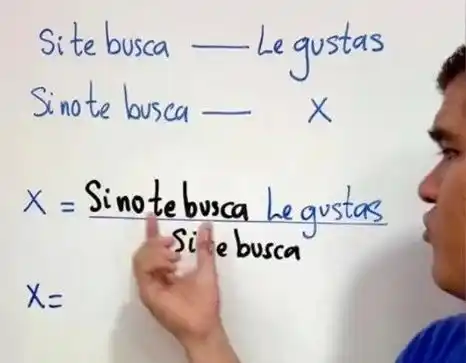 Si te busca — Le gustas
Si no te busca — X
X = Si no te busca Le gustas
Si te busca
X=